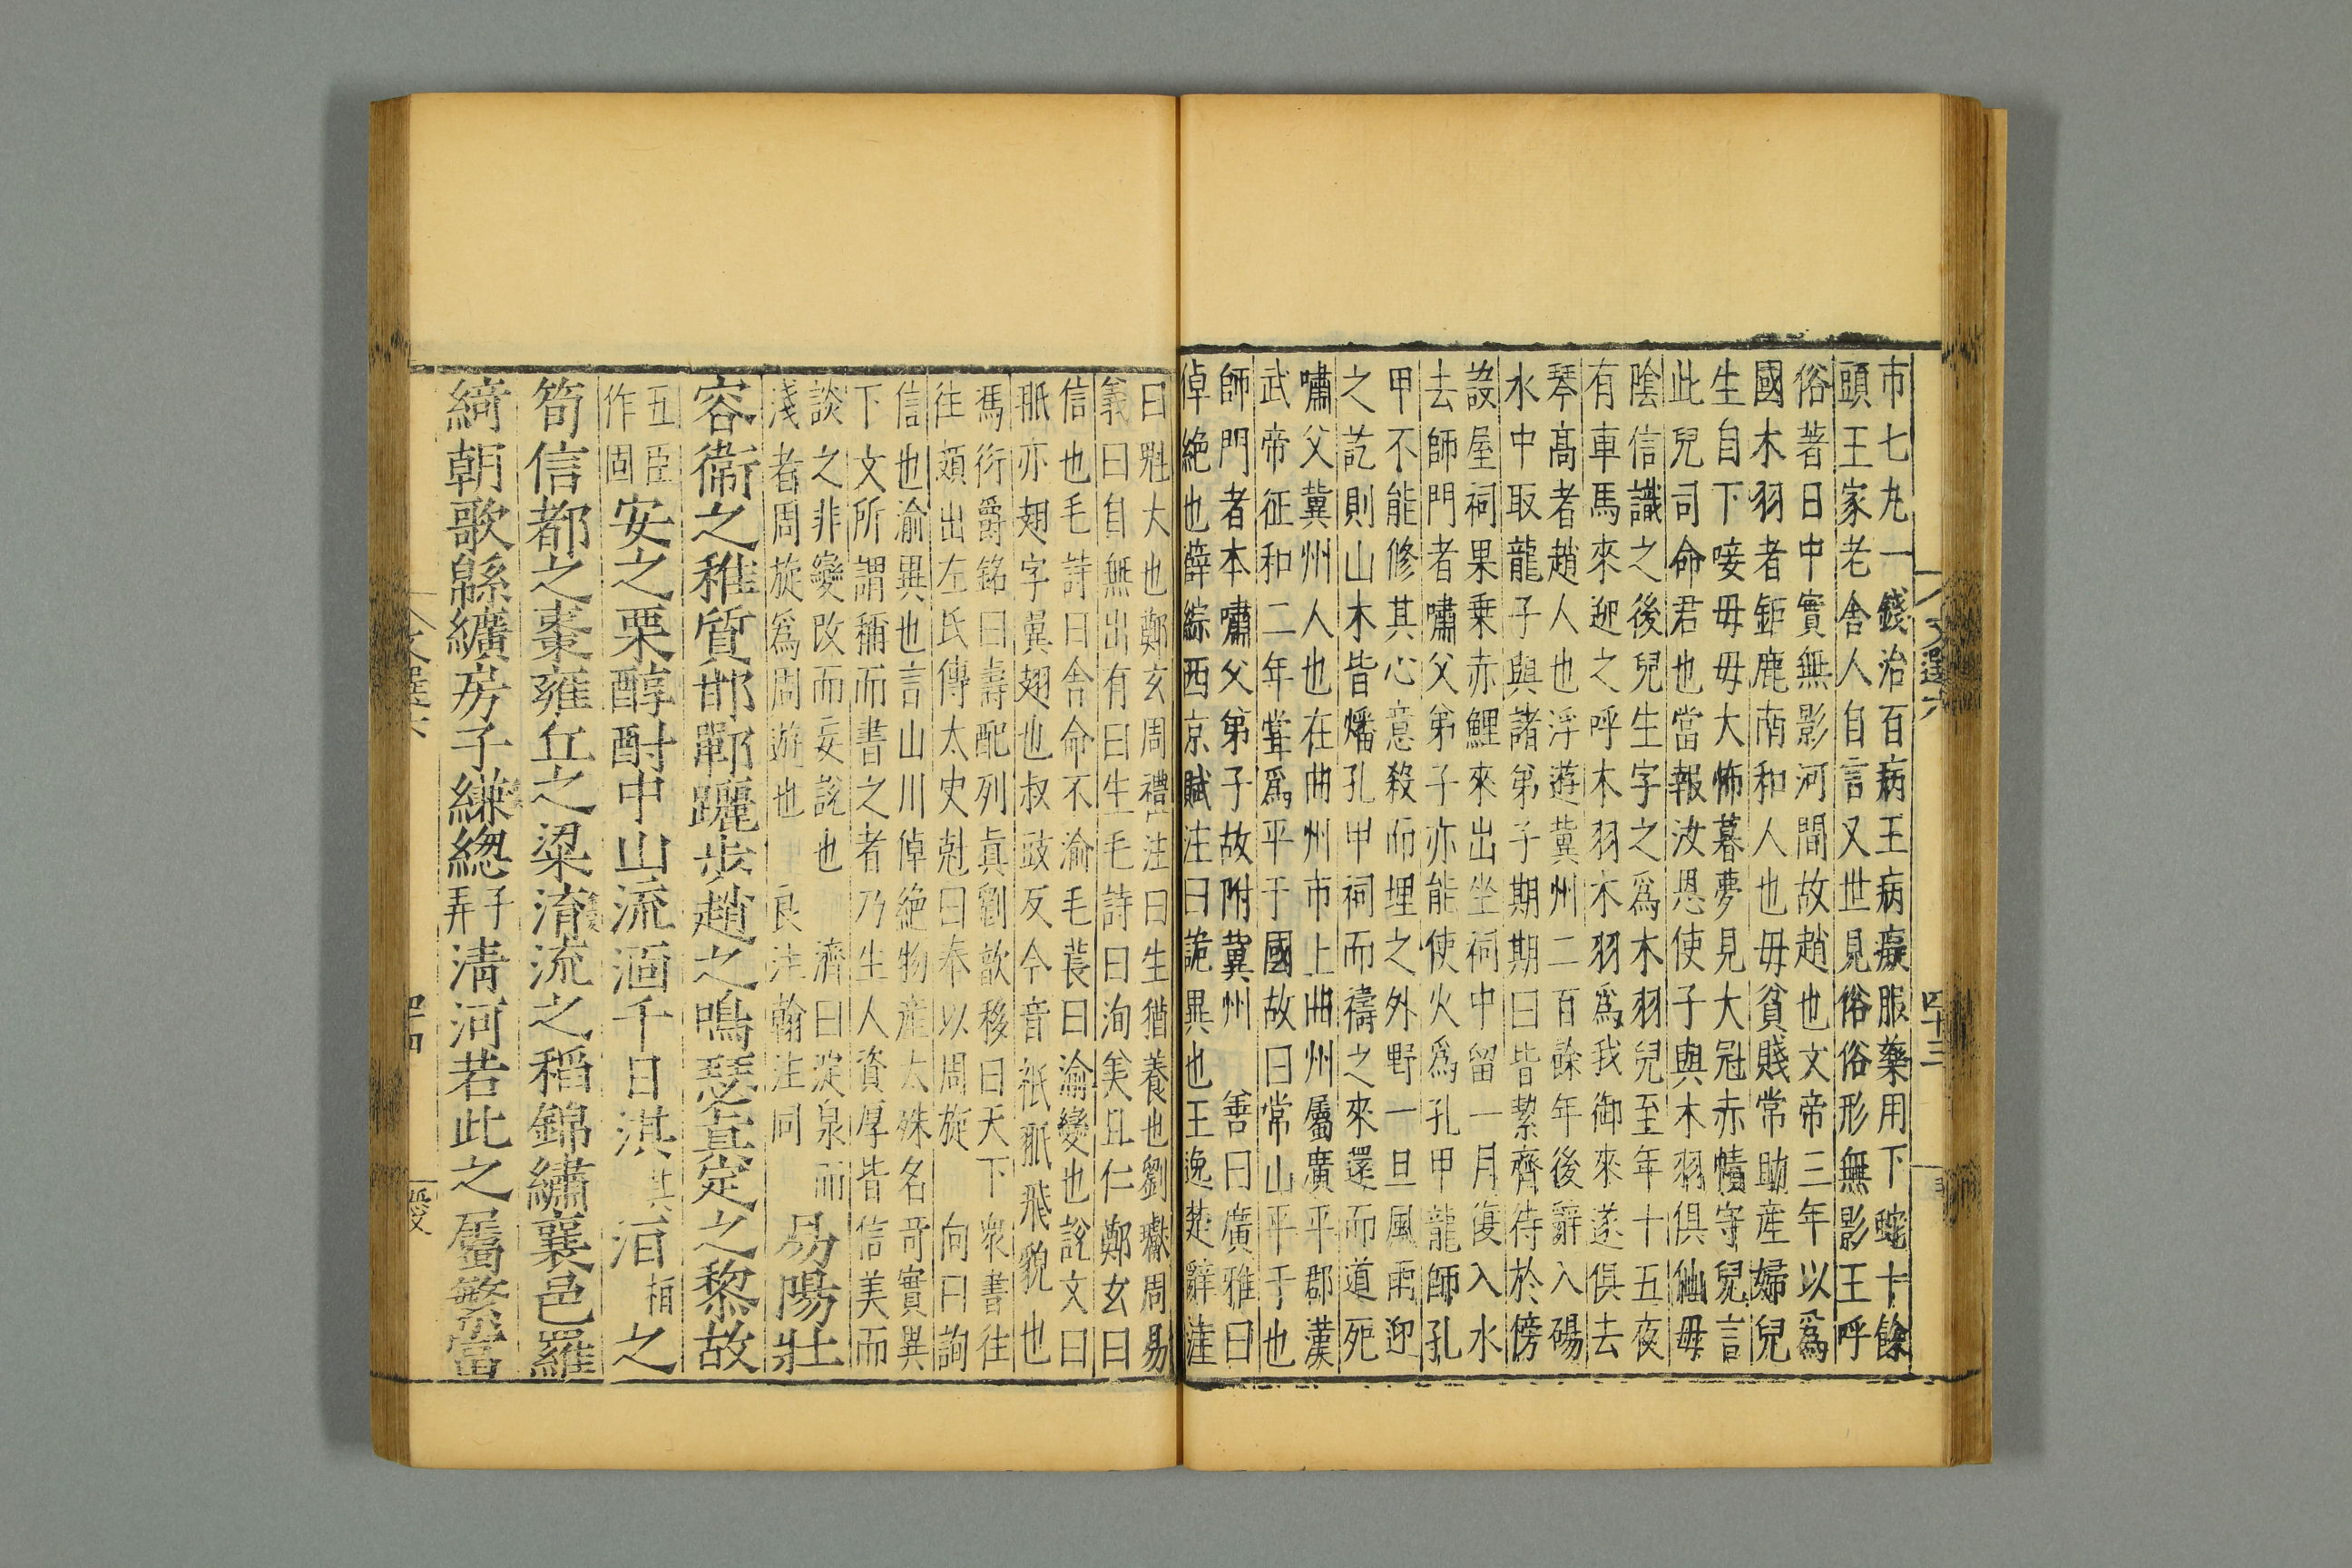 市七丸一錢治百病王病癡服藥用下蛇十餘
頭王家老舍人自言又世見俗俗形無影王呼
俗著日中實無影河間故趙也文帝三年以爲
國木羽者鉅鹿南和人也毋貧賤常助産婦兒
生自下唼毋毋大怖暮夢見大冠赤幘守兒言
此兒司命君也當報汝恩使子與木羽俱仙毋
陰信識之後兒生字之爲木羽兒至年十五夜
有車馬來迎之呼木羽木羽爲我御來遂俱去
琴高者趙人也浮遊冀州二百餘年後辭入碭
水中取龍子與諸弟子期期曰皆絜齊待於傍
設屋祠果乗赤鯉來出坐祠中留一月復入水
去師門者嘯父弟子亦能使火爲孔甲龍師孔
甲不能修其心意殺而埋之外野一旦風雨迎
之訖則山木皆燔孔甲祠而禱之來還而道死
嘯父冀州人也在曲州市上曲州屬廣平郡漢
武帝征和二年㙜爲平于國故曰常山平于也
師門者本嘯父第子故附冀州 善曰廣雅曰
倬絶也薛綜西京賦注曰詭異也王逸楚辭注
文選六
四十三
曰魁大也鄭玄周禮注曰生猶養也劉瓛周易
義曰自無出有曰生毛詩曰洵美且仁鄭玄曰
信也毛詩曰舍命不渝毛萇曰渝變也說文曰
羾亦翅字冀翅也叔豉反今音祇羾飛貌也
馮衍爵銘曰壽配列眞劉歆移曰天下衆書往
往頗出左氏傳太史尅曰奉以周旋 向曰詢
信也渝異也言山川倬絶物産尤殊名奇實異
下文所謂稱而書之者乃生人資厚皆信美而
談之非變改而妄說也 濟曰淀泉而
淺者周旋爲周遊也 良注翰注同
易陽壯
容衞之稚質邯鄲躧步趙之鳴瑟眞定之黎故
五臣
作固
安之栗醇酎中山流湎千日淇
其
洹
桓
之
筍信都之棗雍丘之粱淸流之稻錦繡襄邑羅
綺朝歌緜纊房子縑緫
子
弄
淸河若此之屬繁富
文選六
四十四